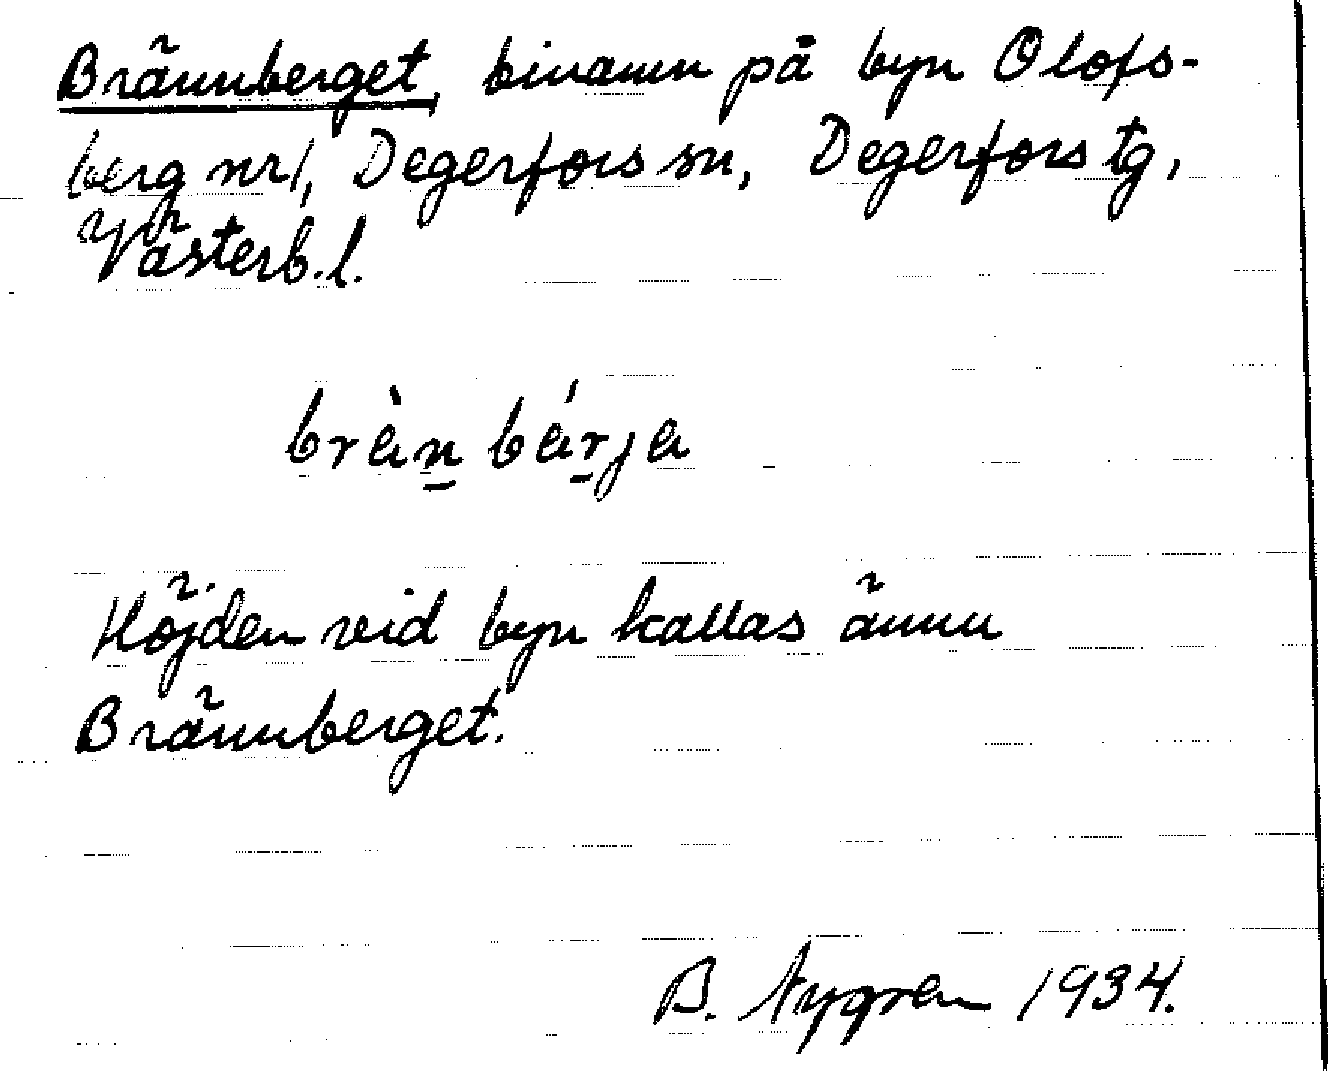 Brännberget, binamn på byn Olofs-
berg nr 1, Degerfors sn, Degerfors tg,
Västerb. l.
bràn bárja
Höjden vid byn kallas ännu
Brännberget.
B. Nygren 1934.